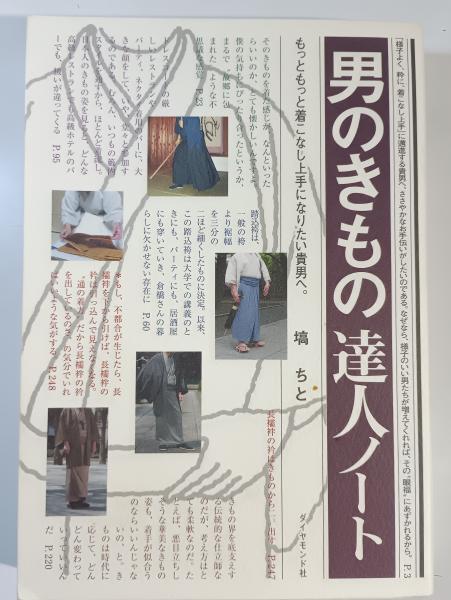 「様子よく、粋に、着こなし上手」に邁進する貴男へ、ささやかなお手伝いがしたいのである。なぜなら、様子のいい男たちが増えてくれれば、その“眼福”にあずかれるから。 P.3
男のきもの 達人ノート
もっともっと着こなし上手になりたい貴男へ。
塙 ちと
ダイヤモンド社
そのきものを着た感じが、なんといった
らいいのか、とても懐かしいんですよ。
僕の気持ちにぴったり合ったというか、
まるで、故郷に包
まれた、ような不
思議な感覚 P.23
ドレスコードの厳
しいレストランや
パーティ、ネクタイ着用のバーに、大
きな顔をして、いや、堂々と参加す
るのである。むろん、いつもの範疇
スタイルですから、ほとんど着流し。
日本人のきもの姿を見ると、どんな
高級レストランでも高級ホテルのバ
ーでも、扱いが違ってくる P.95
踏込袴は、
一般の袴
より裾幅
を三分の
二ほど細くしたものに決定。以来、
この踏込袴は大学での講義のと
きにも、パーティにも、居酒屋
きにも穿いていき、倉橋さんの暮
らしに欠かせない存在に P.60
＊もし、不都合が生じたら、長
襦袢を下から引けば、長襦袢の
衿は引っ込んで見えなくなる。
“通の着方”だから長襦袢の衿
を出しているのさ、の気分でいれ
ばいいような気がする P.248
長襦袢の衿はきものから
出す P.247
きもの界を底支えす
る伝統的な仕立師な
のだが、考え方はと
ても柔軟なのだ。た
とえば、悪目立ちし
そうな華美なきもの
姿も、着手が似合う
のならいいんじゃな
いの、と。き
ものは時代に
応じて、どん
どん変わって
いっていいん
だ P.220